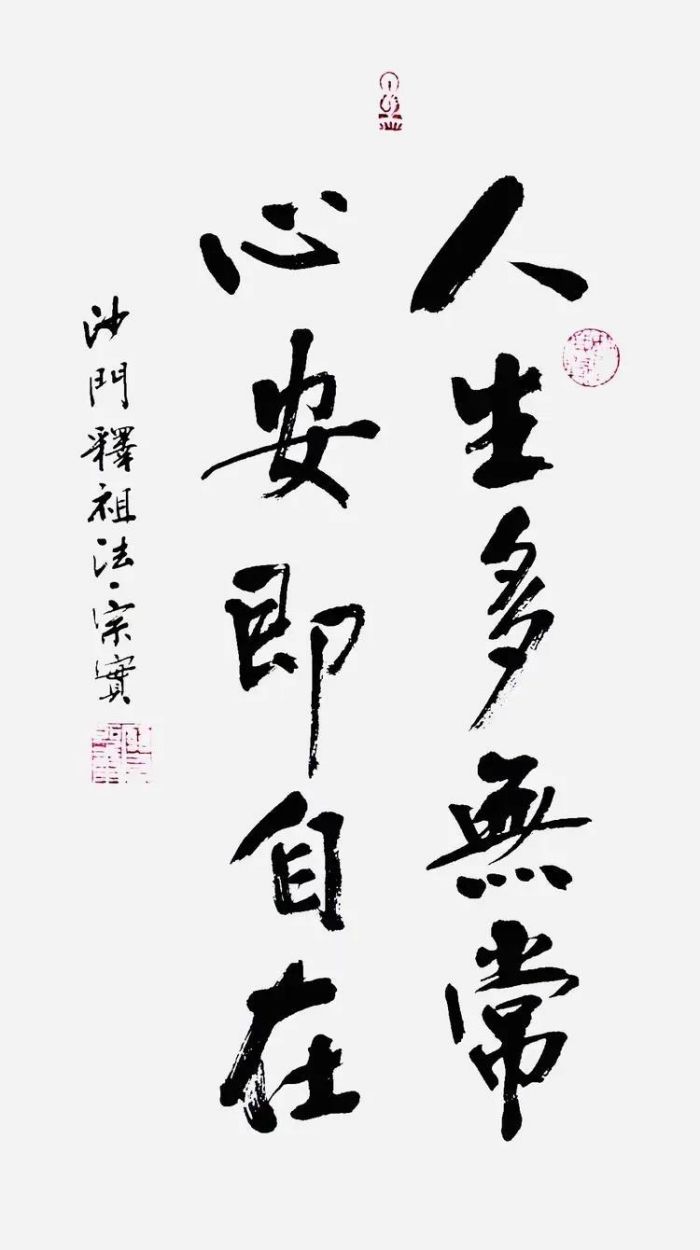 人生多無常
心安即自在
沙門釋祖法·宗實